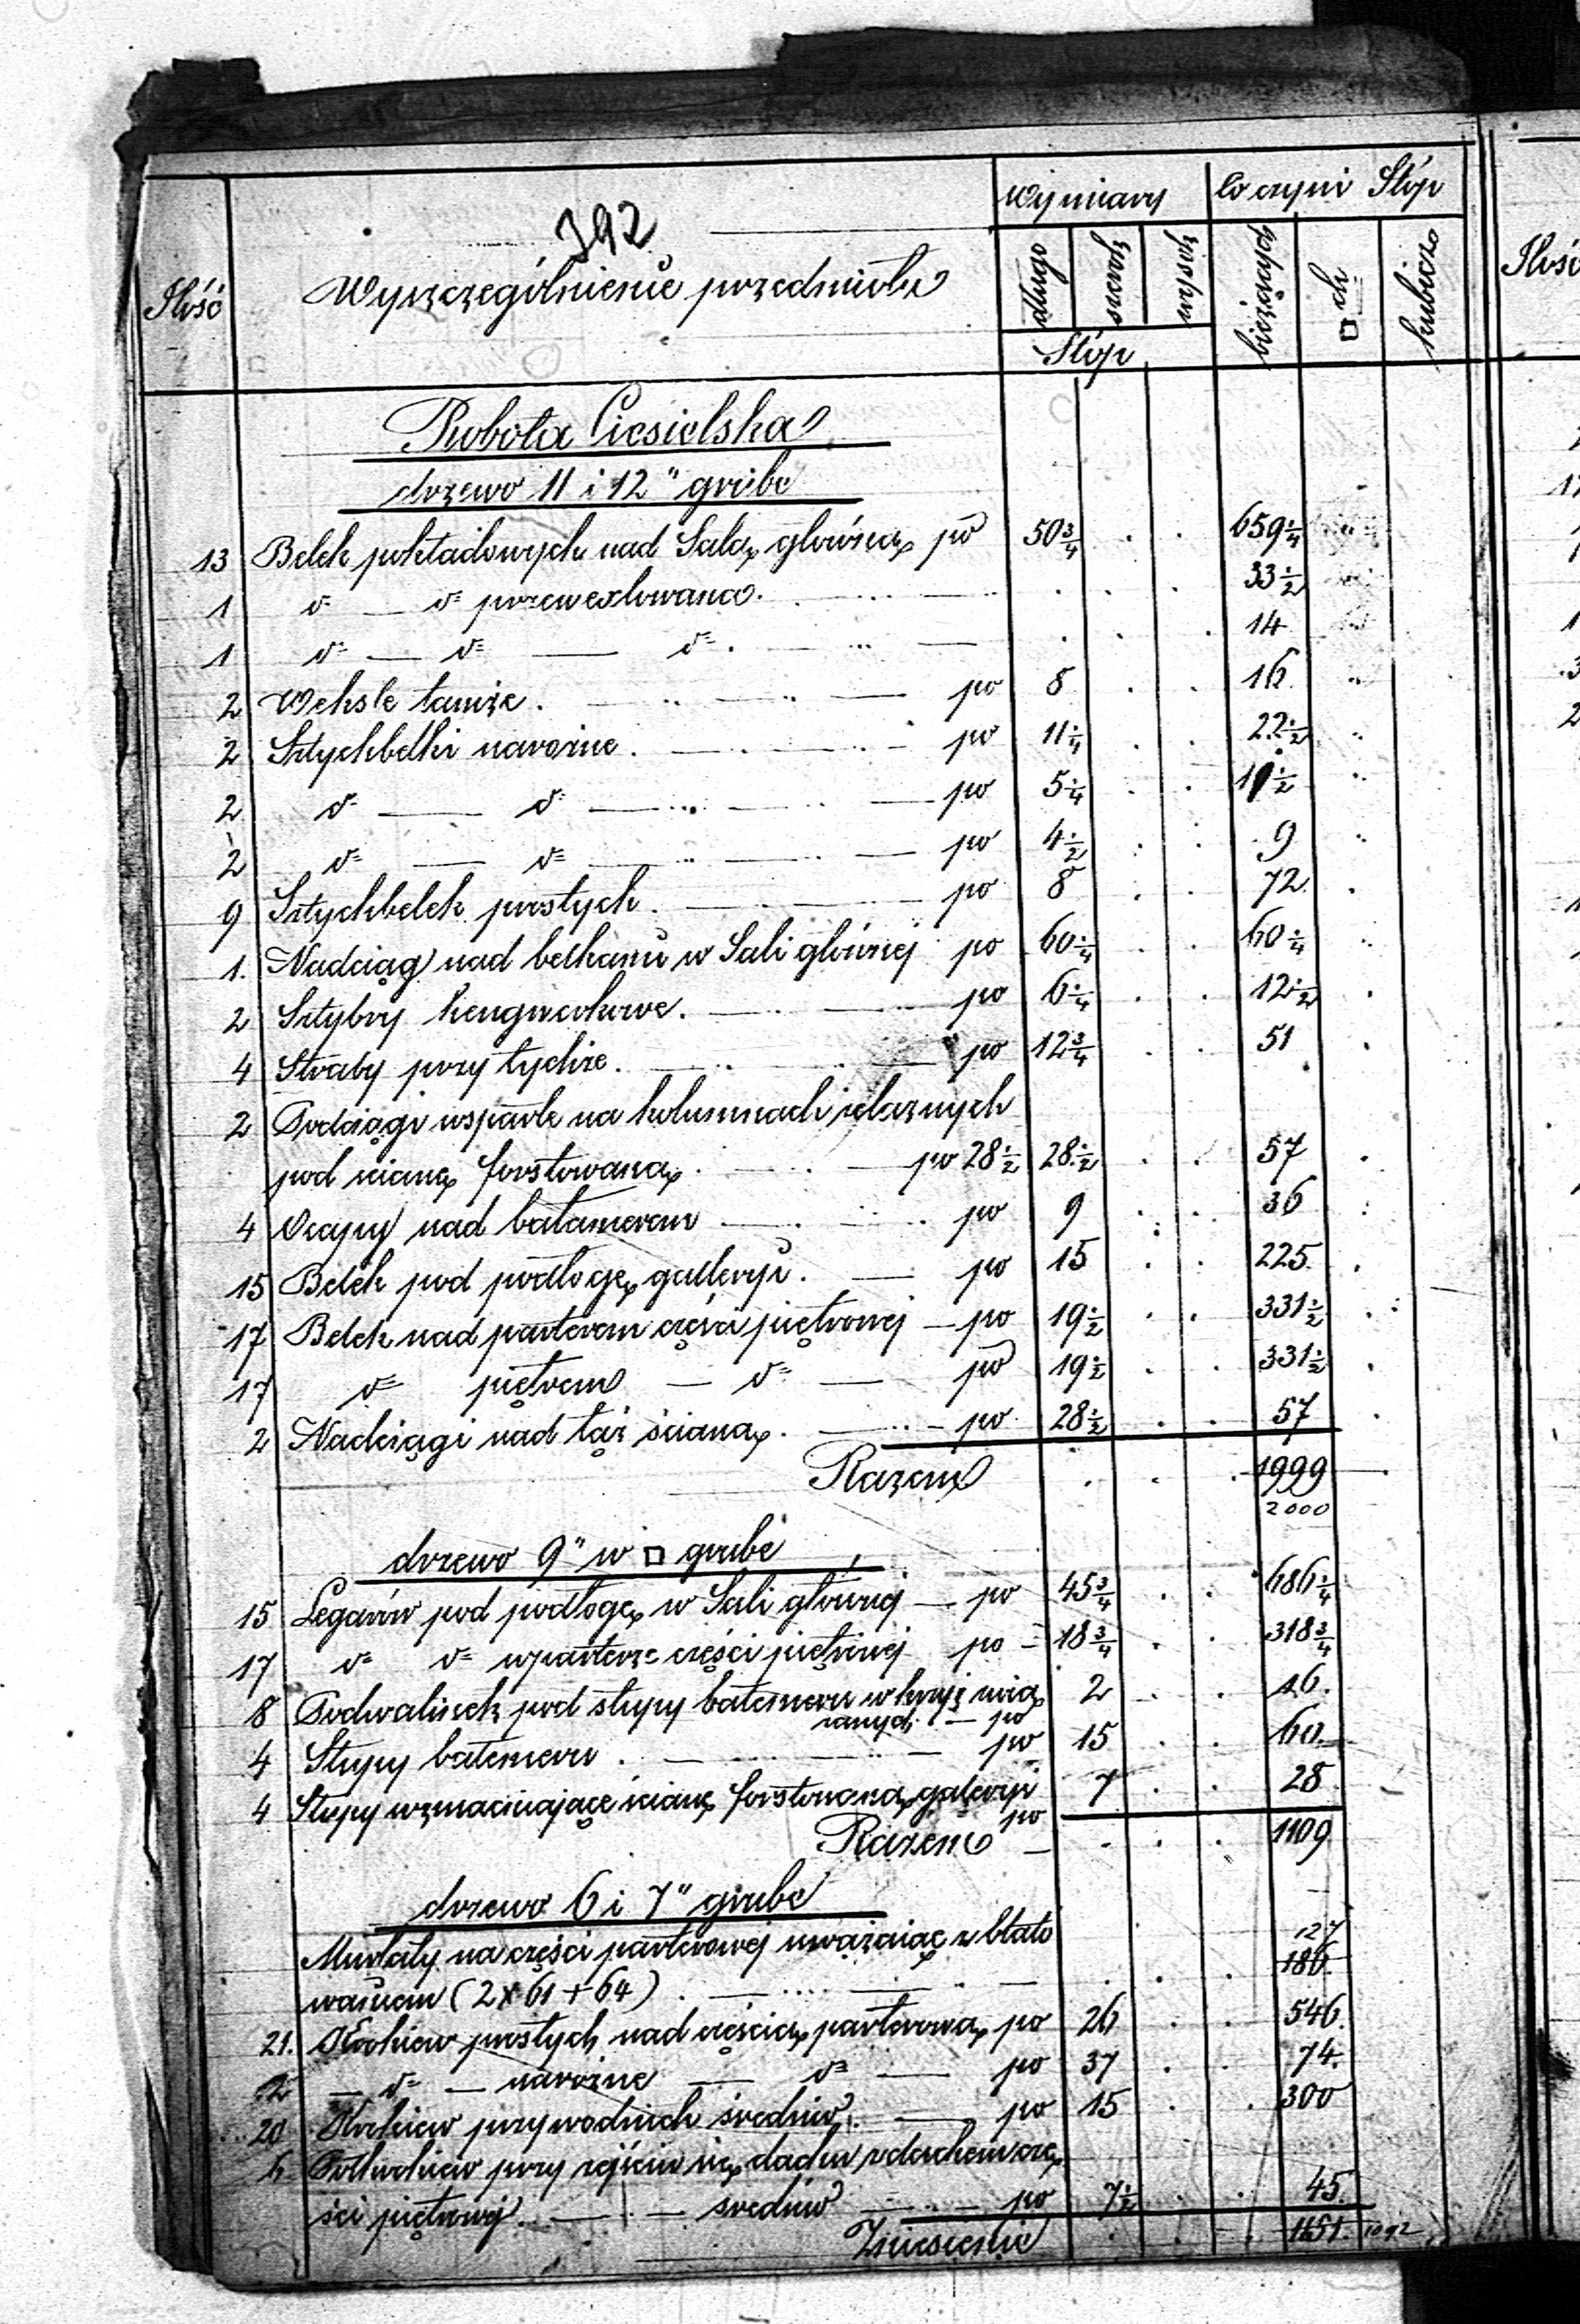 392
Ilość Wyszczególnienie przedmiotu Wymiary Co czyni Stóp
długo szerok wysok bieżących □ch kubiczn
Stóp
Ilość
Robota Ciesielska
drzewo 11 i 12" grube
13 Belek pokładowych nad Salą główną po 50 3/4 659 1/4
1 d= — d= przewexlowana . 33 1/2
1 d= — d= — d= . 14
2 Weksle tamże . po 8 16
2 Sztychbelki narożne . po 11 1/4 22 1/2
2 d= — d= po 5 1/4 1 1/2
2 d= — d= po 4 1/2 9
9 Sztychbelek prostych . po 8 72
1. Nadciąg nad belkami w Sali głównej po 60 1/4 60 1/4
2 Sztybry hengwerkowe . po 6 1/4 12 1/2
4 Straby przy tychże . po 12 3/4 51
2 Podciągi wsparte na kolumnach żelaznych
pod ścianą forstowaną . po 28 1/2 28 1/2 57
4 Oczapy nad batamerem po 9 36
15 Belek pod podłogę galleryi . po 15 225
17 Belek nad parterem części piętrowej — po 19 1/2 331 1/2
17 d= piętrem — d= — po 19 1/2 331 1/2
2 Nadciągi nad tąż ścianą . po 28 1/2 57
Razem 1999
2000
drzewo 9" w □ grube
15 Legarów pod podłogę w Sali głównej — po 45 3/4 686 1/4
17 d= d= w parterze części piętrowej po 18 3/4 318 3/4
8 Podwalinek pod słupy batemeru w krzyż wią
zanych — po 2 16.
4 Słupy batemeru . po 15 60.
4 Słupy wzmacniające ścianę forstowaną galeryi 7 28
po
Razem 1109
drzewo 6 i 7" grube
Murłaty na części parterowej uważając z blato 127
waniem (2 x 61 + 64) . 186.
21. Krokiew prostych nad częścią parterową po 26 546.
2 — d= — narożne — d= — po 37 74.
20 Krokiew przywodnich średnio . po 15 300
6 Półkrokiew przy zejściu się dachu z dachem czę
ści piętrowej . — średnio po 7 1/2 45.
Zniesienie 1151. 1092